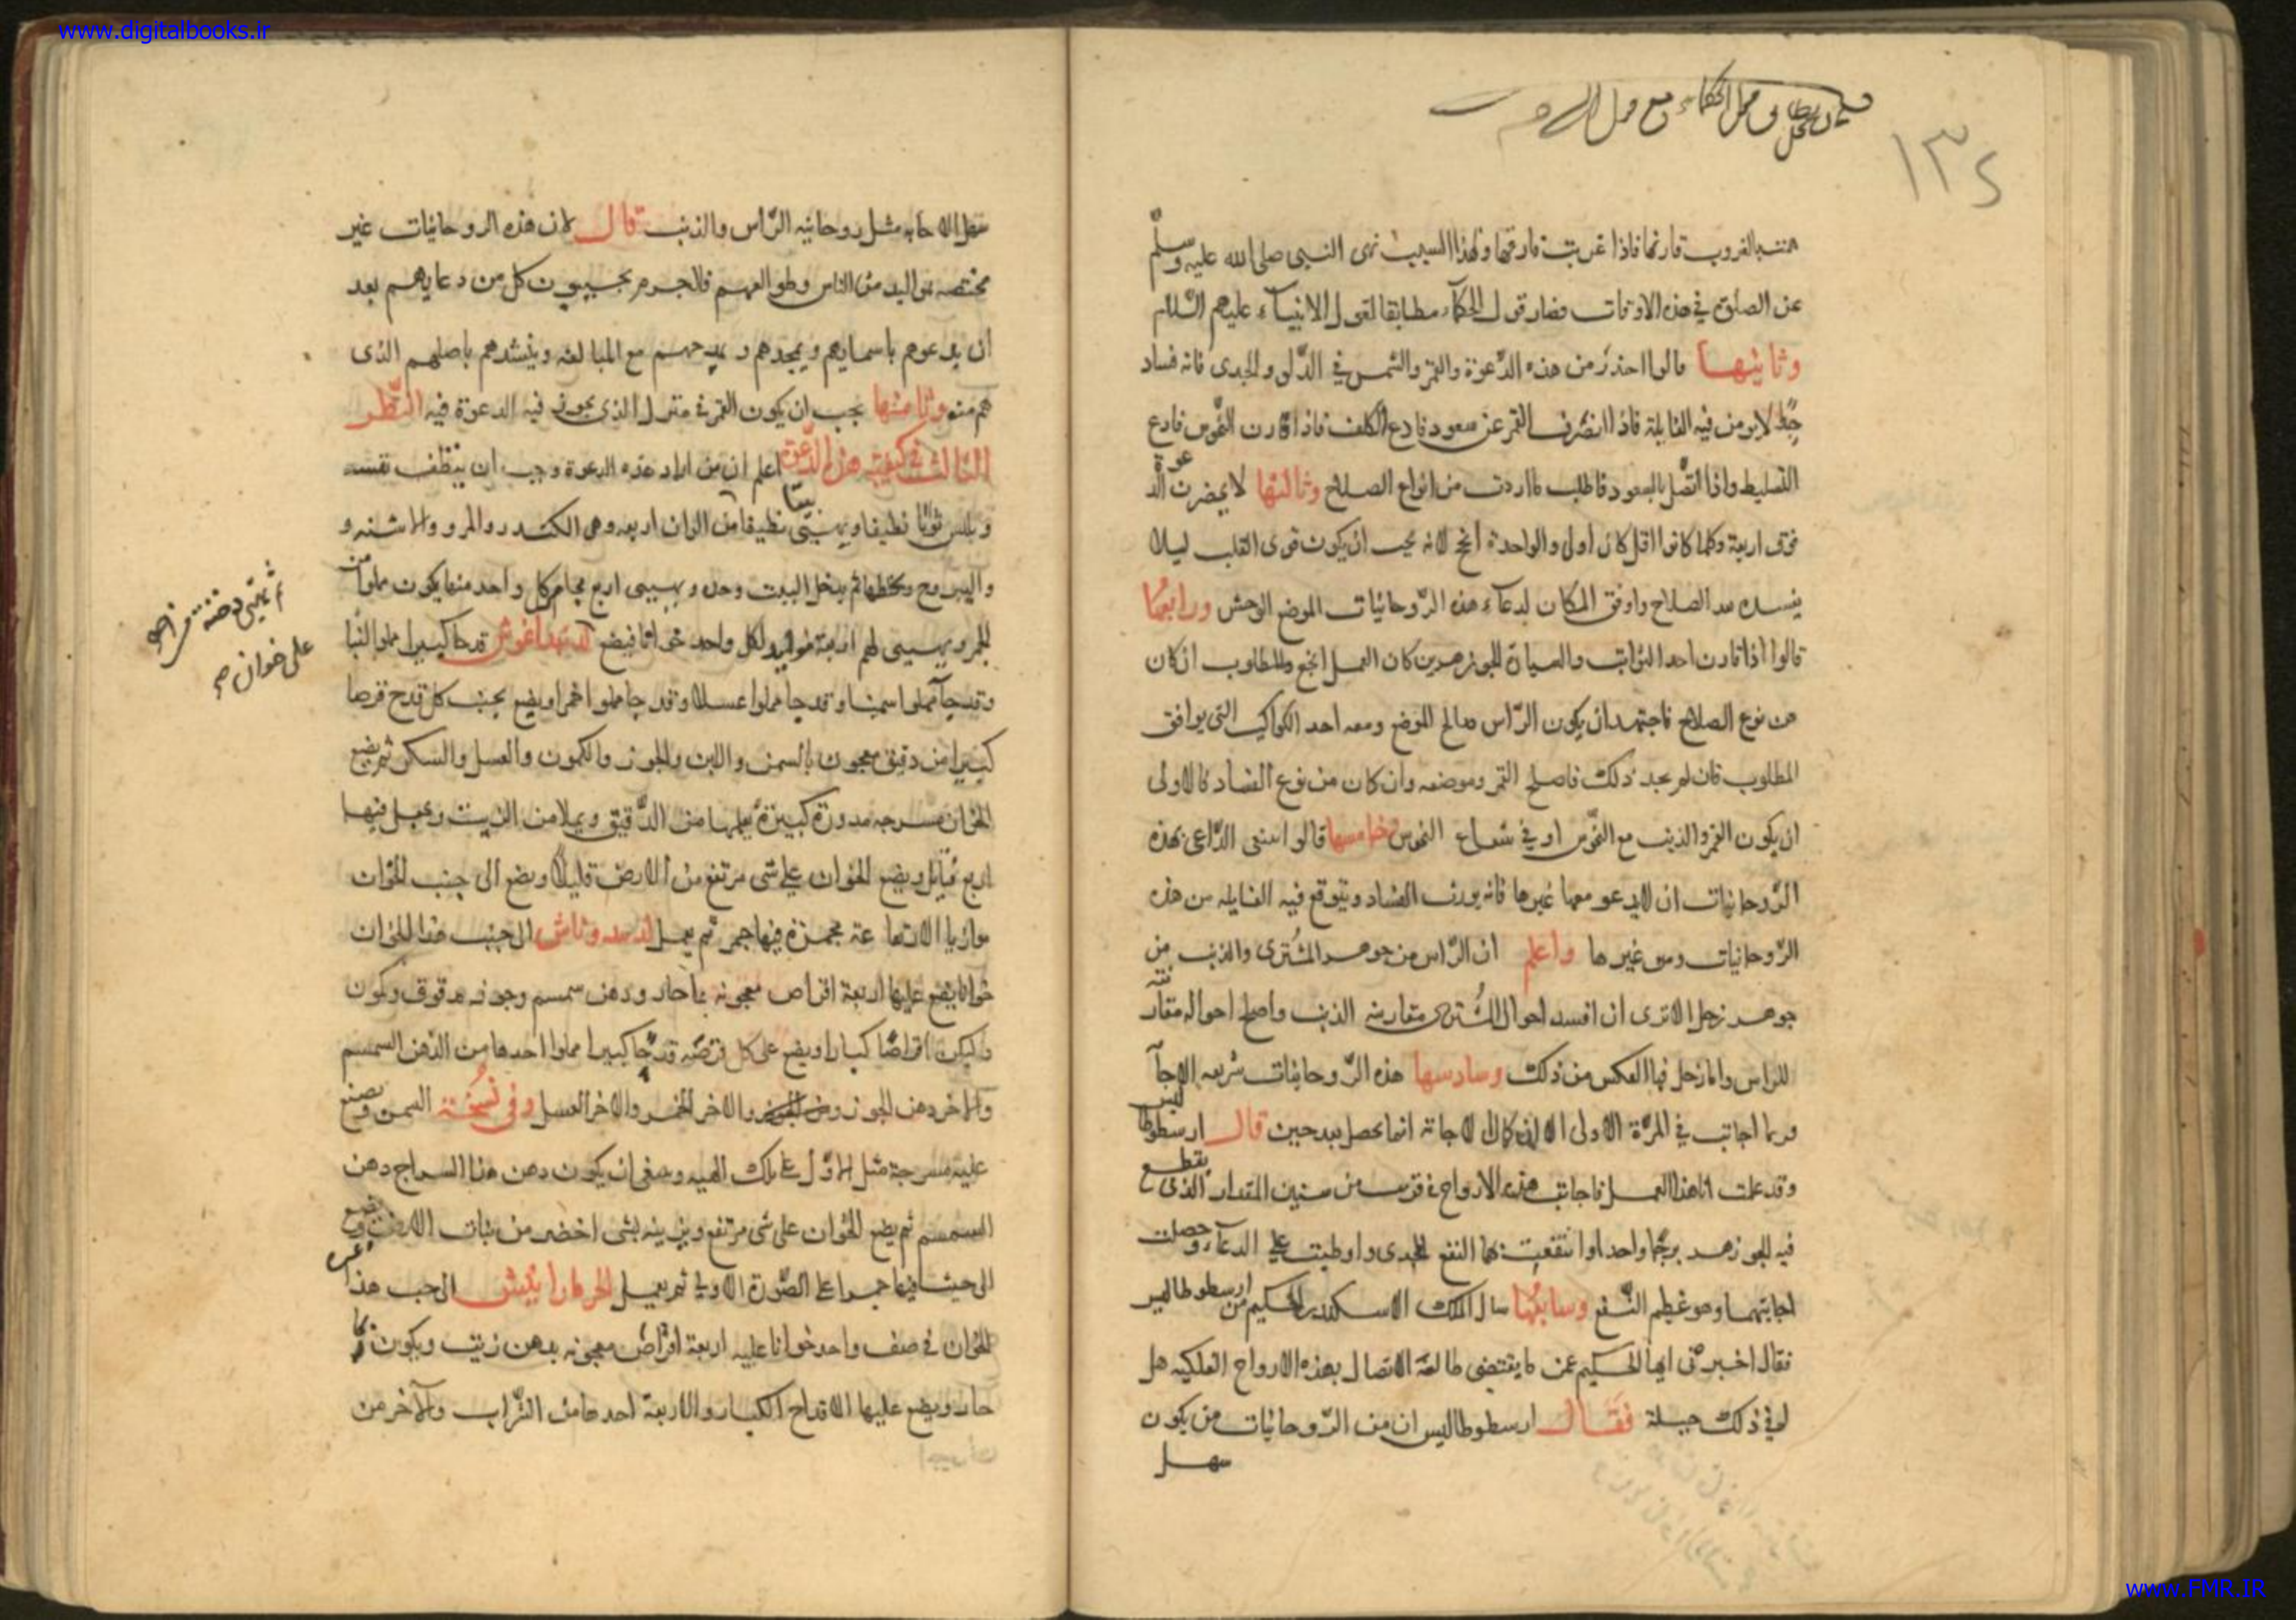 www.digitalbooks.ir
١٣٤
قارنها فاذا غربت فارقها ولهذا السبب نهى النبى صلى الله عليه وسلم
عن الصلوة في هذه الاوقات فصار قول الحكمآء مطابقا لقول الانبيآء عليهم السّلام
وثانيها قالوا احذر من هذه الدّعوة والقمر والشمس في الدّلو والجدى فانه فساد
جدّا لا يومن فيه الغايلة فاذا انصرف القمر عن سعود فادع الكلف فاذا قارن النّحوس فادع
التسليط واذا اتّصل بالسعود فاطلب ما اردت من انواع الصلاح وثالثها لا يحضرن الدّعوة
فوق اربعة وكلما كانوا اقل كان اولى والواحد انجح لانه يجب ان يكون قوى القلب ليلا
يفسد الصلاح واوفق المكان لدعآء هذه الرّوحانيات الموضع الوحش ورابعها
قالوا اذا قارن احد الثوابت والسيارة للجوزهرين كان العمل انجح وللمطلوب ان كان
من نوع الصلاح فاجتهد ان يكون الرّاس صالح الموضع ومعه احد الكواكب التى يوافق
المطلوب فان لم يجد ذلك فاصلح القمر وموضعه وان كان من نوع الفساد فالاولى
ان يكون القمر والذنب مع النّحوس او في شعاع النحوس وخامسها قالوا الداعى بهذه
الرّوحانيات ان لا يدعو معها غيرها فانه يورث الفساد ويتوقع فيه الغايله من هذه
الرّوحانيات ومن غيرها واعلم ان الرّاس من جوهر المشترى والذنب من
جوهر زحل الا ترى ان افسد احوال المشترى مقارنه الذنب واصلح احواله مقارنته
للراس واما زحل فبالعكس من ذلك وسادسها هذه الرّوحانيات سريعه الاجآ
وربما اجابت في المرّة الاولى الا ان كمال الاجابة انما يحصل بعد حين قال ارسطوطاليس
وقد عملت انا هذا العمل فاجابت هذه الارواح في قرب من سنين المقدار الذى يقطع
فيه الجوزهر برجًا واحدا وانتفعت بهما النفع للجدى واوظبت على الدعآء وحصلت
اجابتهما وهو عظيم النّفع وسابعها سال الملك الاسكندر الحكيم من ارسطوطاليس
فقال اخبرنى ايها الحكيم عمن ما يقتضى طالعه الاتصال بهذه الارواح الفلكيه هل
له في ذلك حيلة فقال ارسطوطاليس ان من الرّوحانيات من يكون
سهل
سهل الاجابه مثل روحانيه الرّاس والذنب قال لان هذه الروحانيات غير
مختصه بمواليد من الناس وطوالعهم فلا جرم يجيبون كل من دعاهم بعد
ان يدعوهم باسمايهم ويمجدهم ويمدحهم مع المبالغه وينشدهم باصلهم الذى
هم منه وثامنها يجب ان يكون القمر في منزل الذى يجوز فيه الدعوة فيه النّظر
الثالث في كيفية هذه الدّعوة اعلم ان من اراد هذه الدعوة وجب ان ينظف نفسه
ويلبس ثوبًا نظيفا ويهيئ بيتا نظيفا من الوان اربعه وهى الكندر والمر والاشنه و
واليبروح ويخلطها ثم يدخل البيت وحده ويهيى اربع مجامر كل واحد منها يكون مملوا من
الجمر ويهيى لهم اربعة موايد لكل واحد خوانا فيضع قدحا كبيرا مملوا لبنا
وقدحا مملوا سمنا وقدحا مملوا عسلا وقدحا مملوا خمرا ويضع بجنب كل قدح قرصا
كبيرا من دقيق معجون بالسمن واللبن والجوز والكمون والعسل والسكر ثم يضع
الخوان مسرجه مدورة كبيرة يعملها من الدّقيق ويملا من الزيت ويجعل فيها
اربع فتايل ويضع الخوان على شى مرتفع من الارض قليلا ويضع الى جنب الخوان
موازيا لارتفاعه مجمرة فيها جمر ثم يعمل الى جنب هذا الخوان
خوانا يضع عليها اربعة اقراص معجونه بماء حار ودهن سمسم وجوز مدقوق وكمون
وليكن اقراصًا كبارا ويضع على كل قرصه قدحًا كبيرا مملوا احدها من الدّهن السمسم
والاخر دهن الجوز والاخر الخمر والاخر العسل وفى نسخة السمن ويصنع
عليه مسرجة مثل الاوّل على تلك الهيه وينبغى ان يكون دهن هذا السراج دهن
السمسم ثم يضع الخوان على شى مرتفع ويزينه بشى اخضر من نبات الارض ويضع
الى جنبه جمرا على الصّورة الاولى ثم يعمل الى جنب هذا
الخوان في صنف واحد خوانا عليه اربعة اقراص معجونه بدهن زيت ويكون
حار ويضع عليها الاقداح الكبار والاربعة احدها من الشّراب والآخر من
على خوان صح
www.FMR.IR